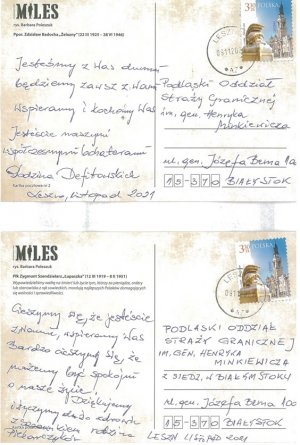 MILES
rys. Barbara Poleszuk
Ppor. Zdzisław Badocha „Żelazny" (22 III 1925 - 28 III 1946)
Jesteśmy z Was dumni
będziemy zawsze z Wami
Wspieramy i kochamy Was
Jesteście naszymi
współczesnymi bohaterami
Rodzina
Leszno, listopad 2021
Kartka pocztowa nr 2
LESZNO
POLSKA
Podlaski Oddział
Straży Granicznej
im. gen. Henryka
Minkiewicza
ul. gen. Józefa Bema 100
15-370 BIAŁYSTOK
MILES
rys. Barbara Poleszuk
Płk Zygmunt Szendzielarz „Łupaszka" (12 III 1910 - 8 II 1951)
Cieszymy się, że jesteście
z Nami, wspieramy Was
Bardzo cieszymy się, że
możemy być spokojni
o nasze życie. Dziękujemy
i życzymy dużo zdrowia
rodzina
LESZN
POLSKA
PODLASKI ODDZIAŁ
STRAŻY GRANICZNEJ
IM. GEN. HENRYKA
MINKIEWICZA
Z SIEDZ. W BIAŁYMSTOKU
ul. gen. Józefa Bema 100
15-370 BIAŁYSTOK
LISTOPAD 2021